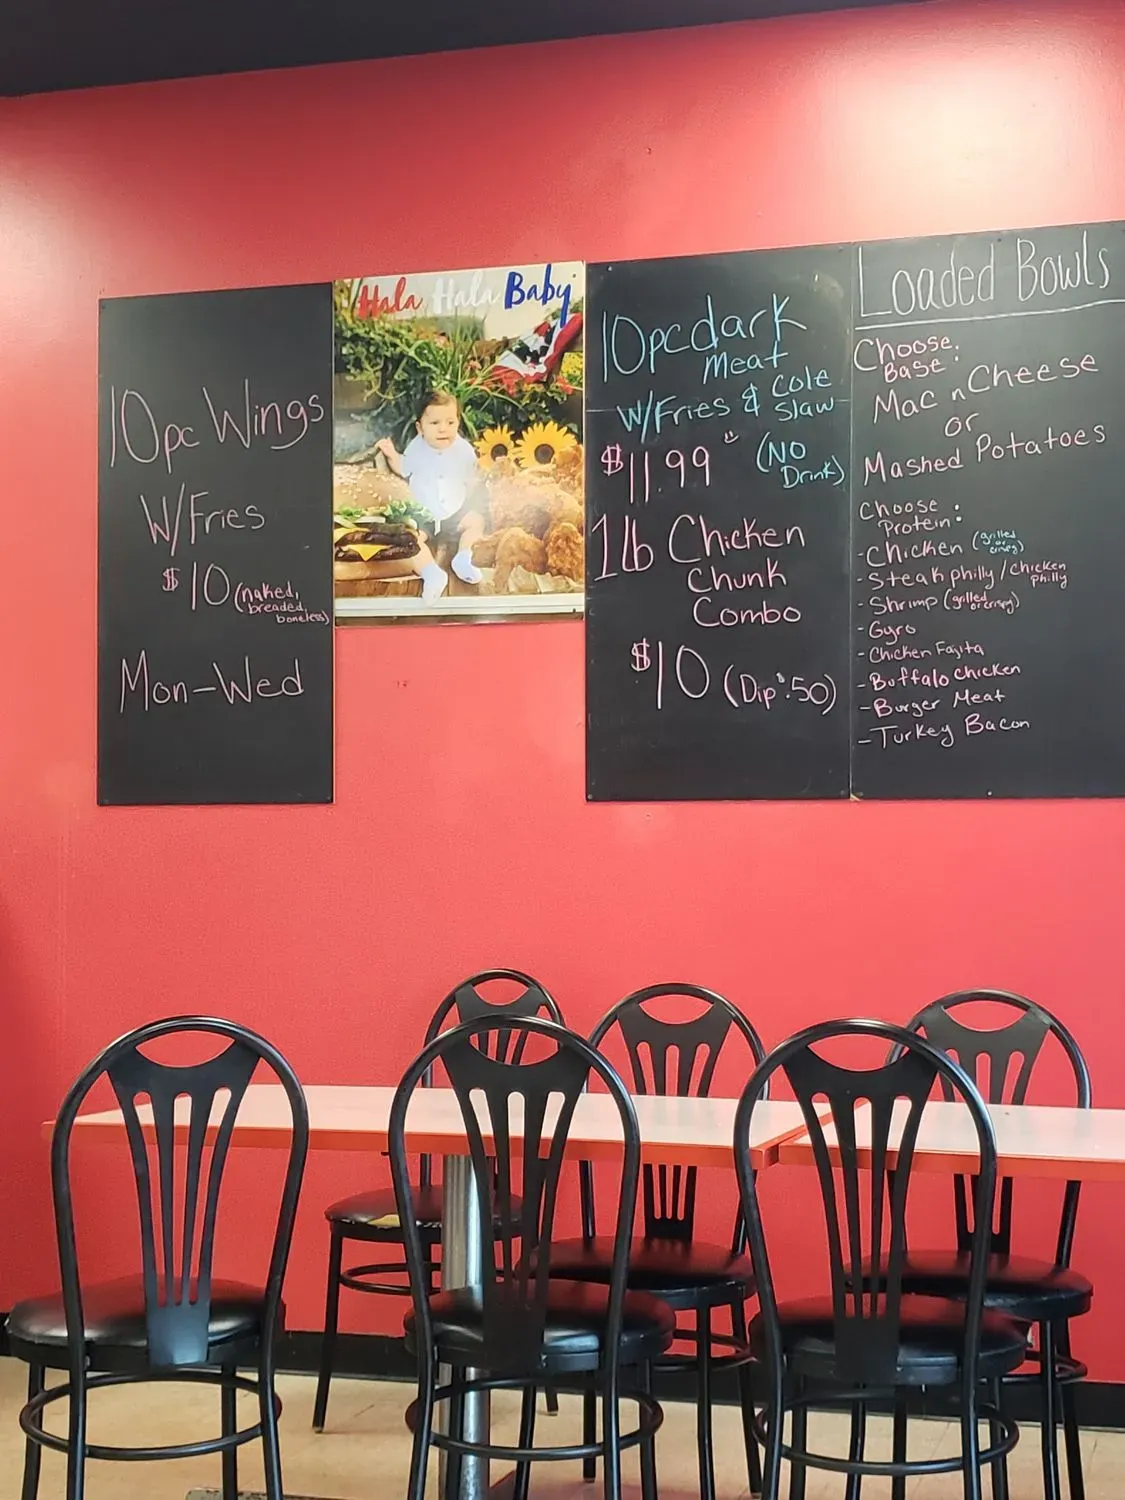 10pc Wings
W/Fries
$10 (naked,
breaded,
boneless)
Mon-Wed
Hala Hala Baby
10pc dark
Meat
W/Fries & Cole
Slaw
$11.99 (NO
Drink)
1lb Chicken
Chunk
Combo
$10 (Dip .50)
Loaded Bowls
Choose
Base:
Mac n Cheese
or
Mashed Potatoes
Choose
Protein:
- Chicken (grilled
or crispy)
- Steak philly / Chicken
philly
- Shrimp (grilled
or crispy)
- Gyro
- Chicken Fajita
- Buffalo Chicken
- Burger Meat
- Turkey Bacon